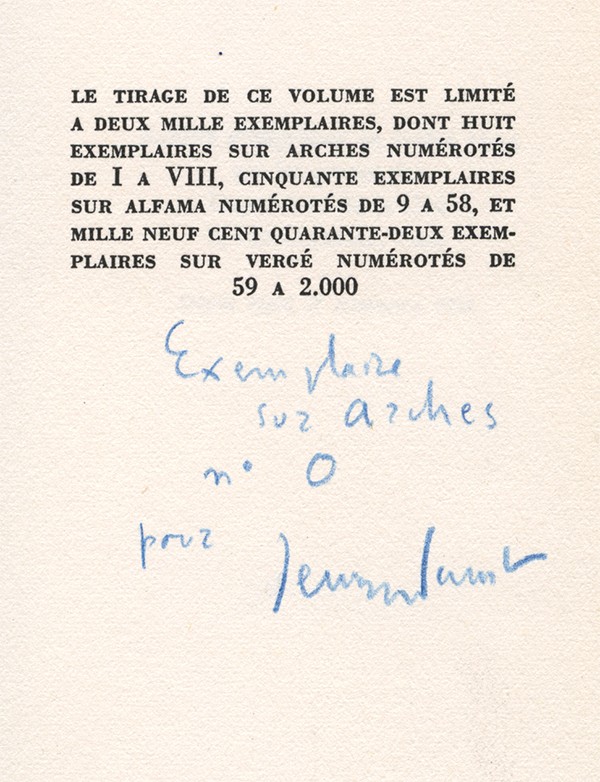 LE TIRAGE DE CE VOLUME EST LIMITÉ
A DEUX MILLE EXEMPLAIRES, DONT HUIT
EXEMPLAIRES SUR ARCHES NUMÉROTÉS
DE I A VIII, CINQUANTE EXEMPLAIRES
SUR ALFAMA NUMÉROTÉS DE 9 A 58, ET
MILLE NEUF CENT QUARANTE-DEUX EXEM-
PLAIRES SUR VERGÉ NUMÉROTÉS DE
59 A 2.000
Exemplaire
sur arches
n° 0
pour